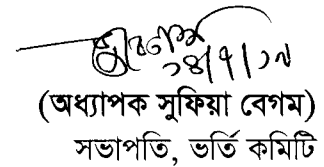 ১৪/৭/১৯
(অধ্যাপক সুফিয়া বেগম)
সভাপতি, ভর্তি কমিটি